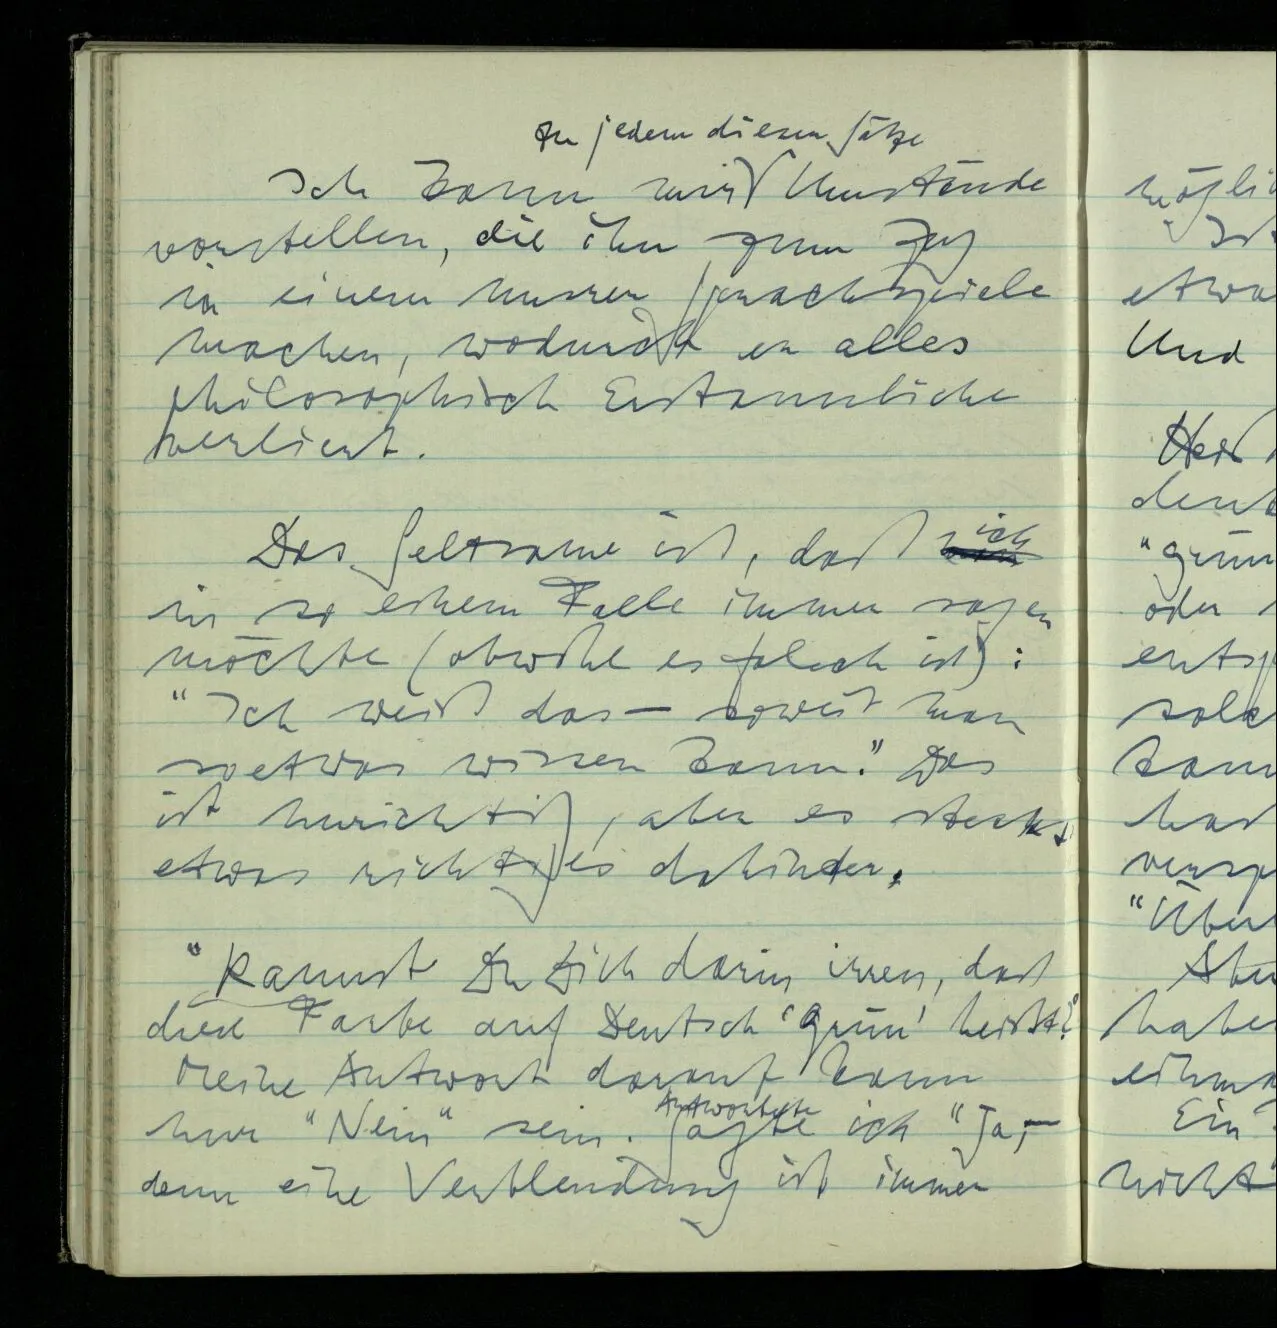 zu jedem dieser Sätze
Ich kann mir Umstände
vorstellen, die ihn zum Zug
in einem unsrer Sprachspiele
machen, wodurch er alles
philosophisch Erstaunliche
verliert.
Das Seltsame ist, daß ich
in so einem Falle immer sagen
möchte (obwohl es falsch ist):
"Ich weiß das – soweit man
so etwas wissen kann." Das
ist unrichtig, aber es steckt
etwas richtiges dahinter.
"Kannst Du Dich darin irren, daß
diese Farbe auf Deutsch 'grün' heißt?"
Meine Antwort darauf kann
nur "Nein" sein. Sagte ich "Ja, –
Antwortete
denn eine Verblendung ist immer
möglic
Ist
etwa
Und
"grün
oder
kann
"Über
Aber
habe
einma
Ein
nicht